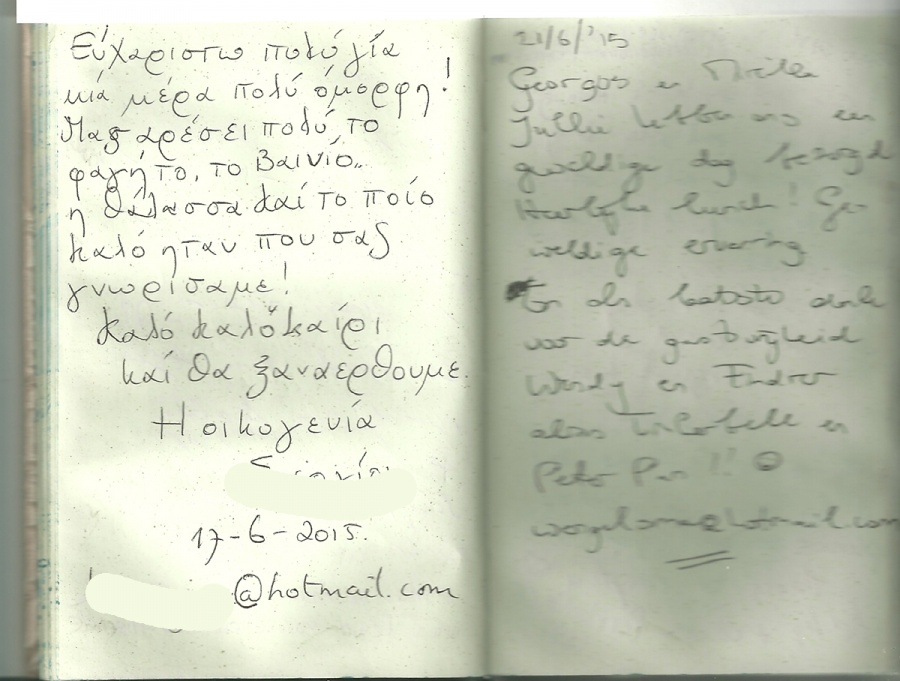 Εύχαριστω πολύ γία
μία μέρα πολύ όμορφη!
Μας αρέσει πολύ, το
φαγήτο, το Βαινίο..
η θάλασσα καί το ποίο
καλό ηταν που σας
γνωρίσαμε!
καλό καλόκαίρι
καί θα ξαναερθουμε.
Η οικογενία
17-6-2015.
@hotmail.com
21/6/'15
Georgos en
Jullie hebben ons een
geweldige dag bezorgd
Heerlijke lunch! Ge-
weldige ervaring
En als laatste dank
voor de gastvrijheid
Wendy en
alias Tinkerbell en
Peter Pan !!